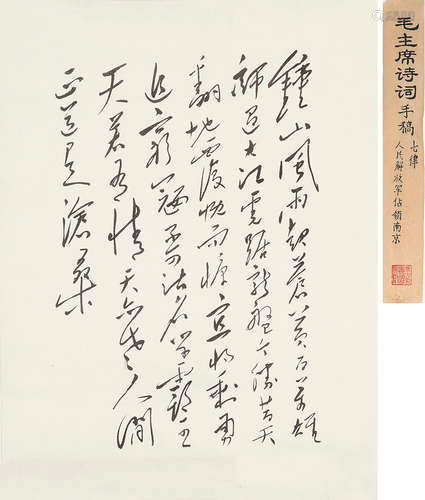 毛主席诗词手稿
七律
人民解放军佔領南京
鐘山風雨起蒼黃百万雄
師过大江虎踞龍盤今勝昔天
翻地覆慨而慷宜將剩勇
追窮寇不可沽名学霸王
天若有情天亦老人間
正道是滄桑